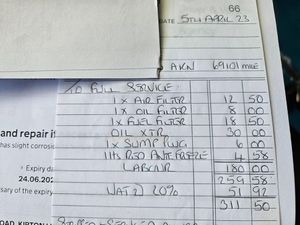 66
DATE 5TH APRIL 23
69101 MILE
TO FULL SERVICE
1 x AIR FILTER 12 50
1 x OIL FILTER 8 00
1 x FUEL FILTER 18 50
OIL XTR 30 00
1 x SUMP PLUG 6 00
1 Ltr RED ANTIFREEZE 4 58
LABOUR 180 00
259 58
VAT @ 20% 51 92
311 50
and repair i
has slight corrosi
Expiry da
24.06.202
sary of the expiry
OAD, KIRTON